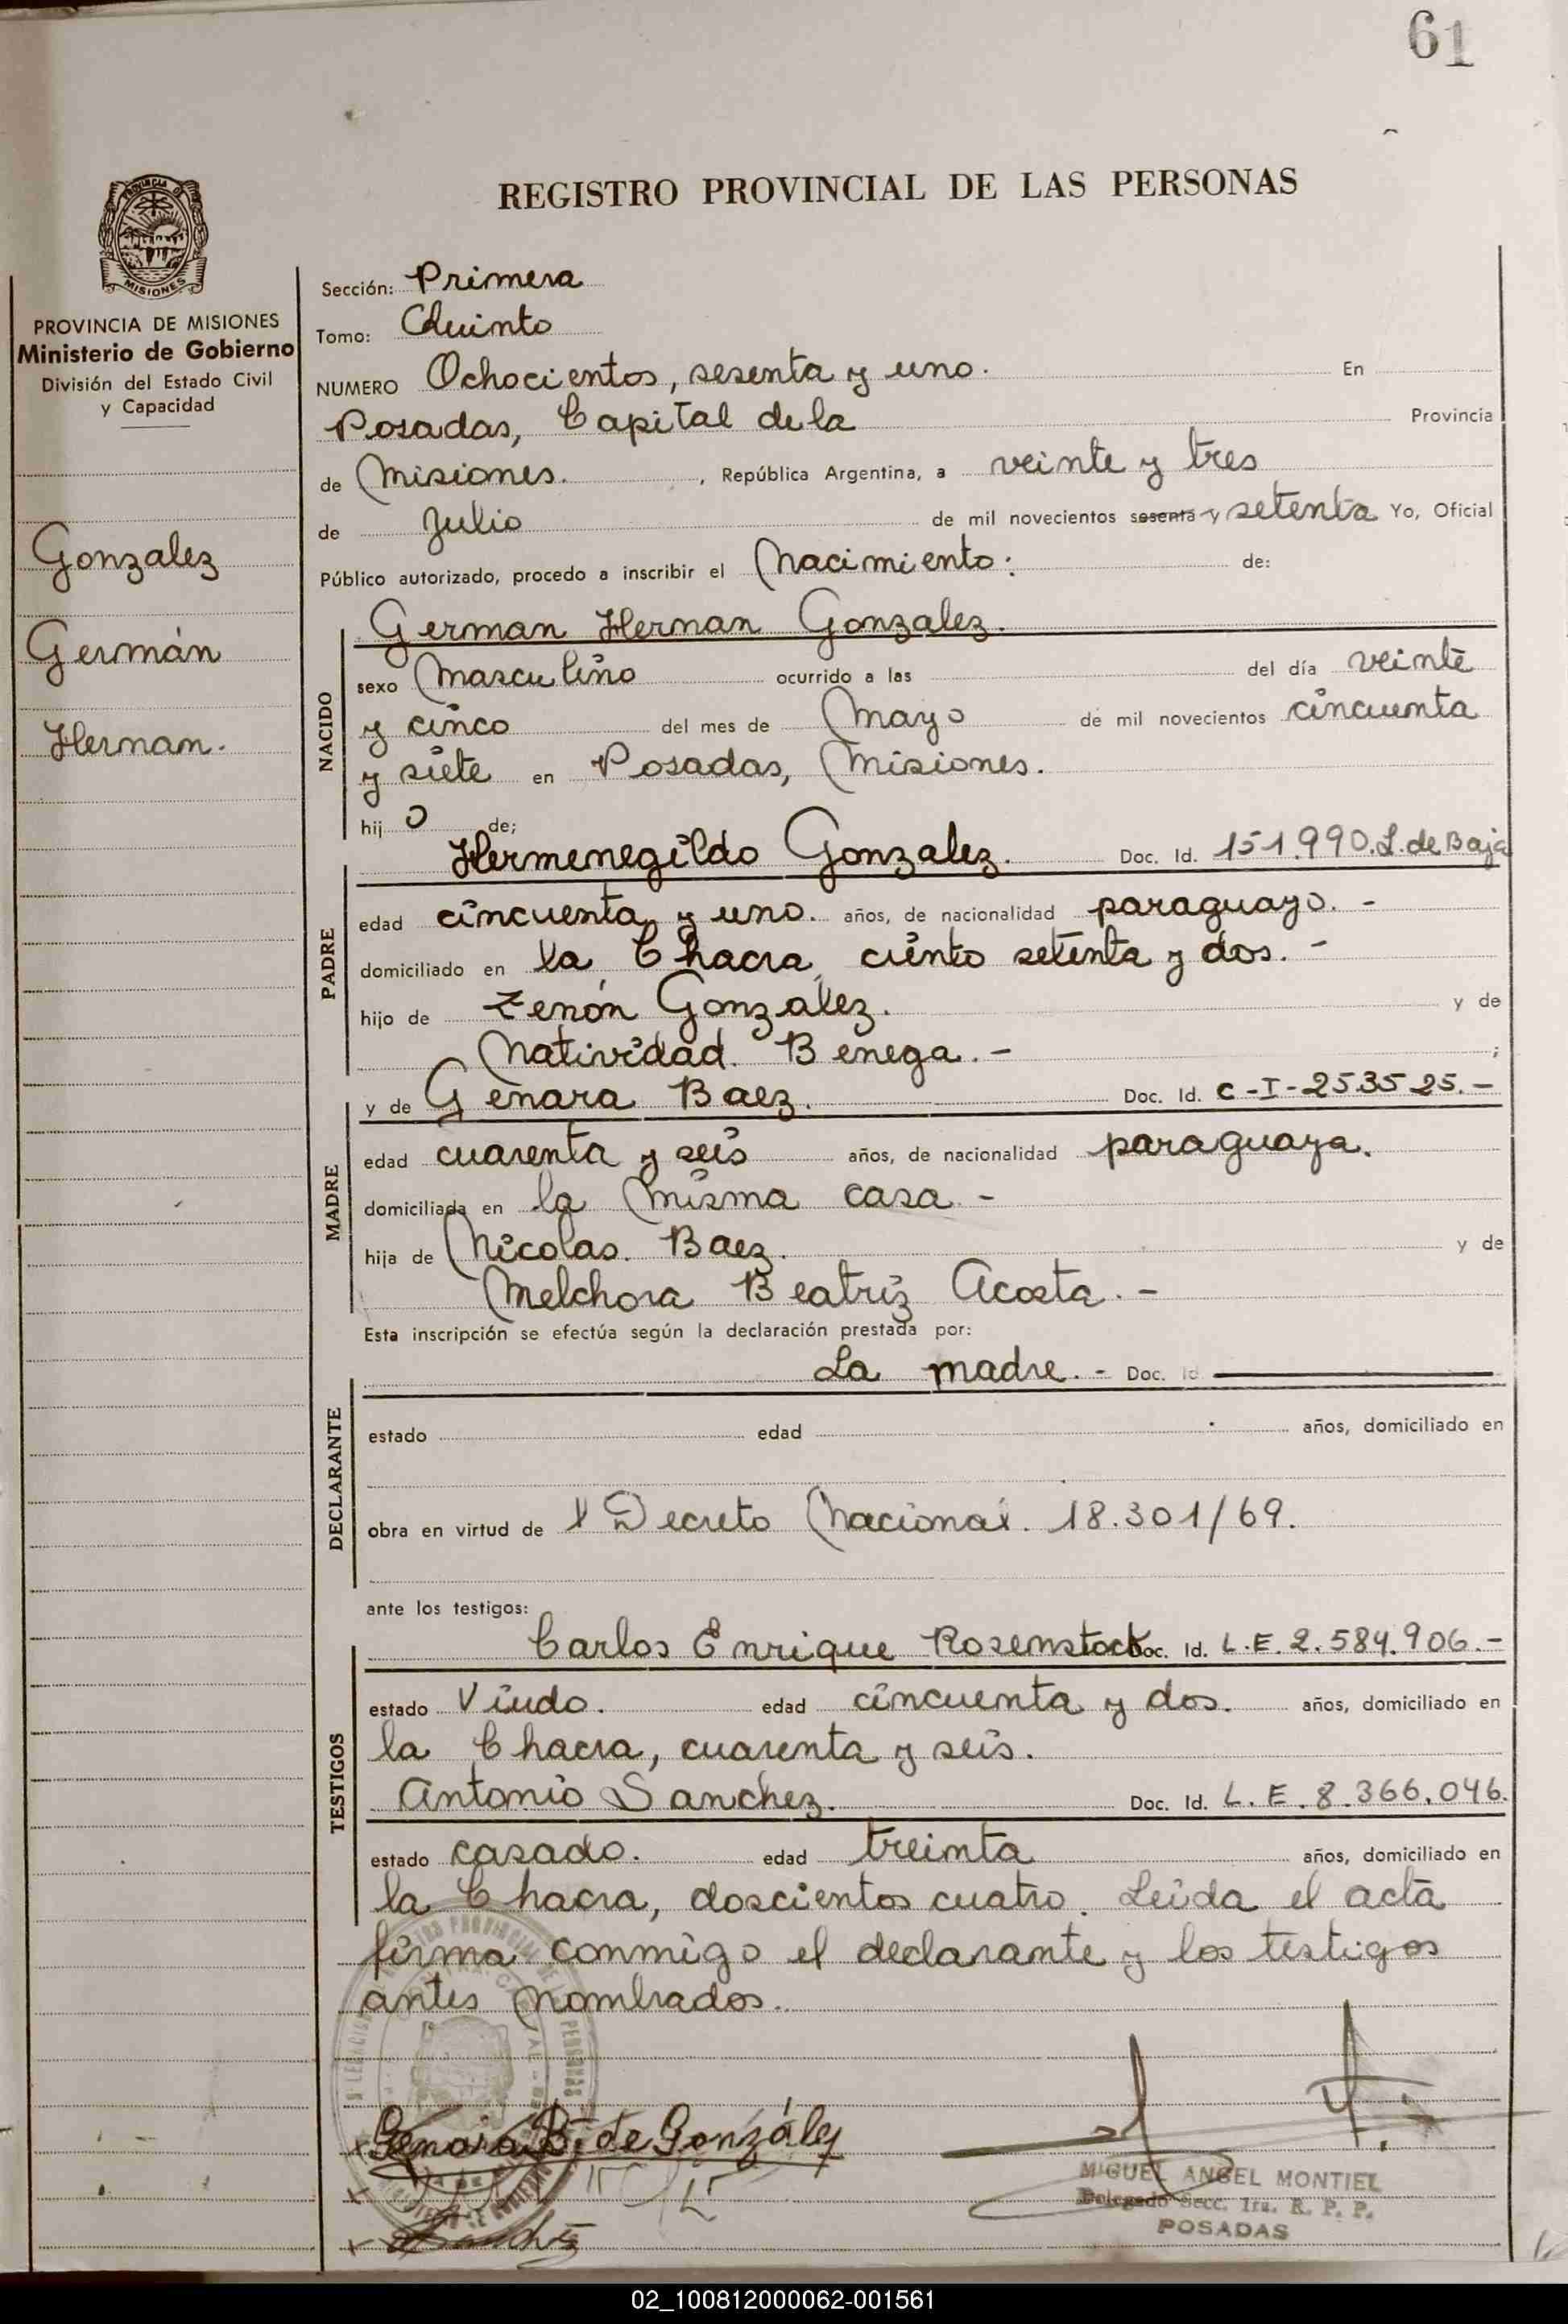 61
REGISTRO PROVINCIAL DE LAS PERSONAS
PROVINCIA DE MISIONES
Ministerio de Gobierno
División del Estado Civil
y Capacidad
Gonzalez
Germán
Hernan.
Sección: Primera
Tomo: Quinto
NUMERO Ochocientos, sesenta y uno. En
Posadas, Capital de la Provincia
de Misiones. , República Argentina, a veinte y tres
de Julio de mil novecientos sesenta y setenta Yo, Oficial
Público autorizado, procedo a inscribir el Nacimiento: de:
German Hernan Gonzalez.
NACIDO
sexo Masculino ocurrido a las del día veinte
y cinco del mes de Mayo de mil novecientos cincuenta
y siete en Posadas, Misiones.
hij o de;
Hermenegildo Gonzalez. Doc. Id. 151.990.L. de Baja
PADRE
edad cincuenta y uno. años, de nacionalidad paraguayo. -
domiciliado en la Chacra, ciento setenta y dos. -
hijo de Zenón González. y de
Natividad. Benega. - ;
y de Genara Baez. Doc. Id. C-I-253525.-
MADRE
edad cuarenta y seis años, de nacionalidad paraguaya.
domiciliada en la Misma casa -
hija de Nicolas. Baez. y de
Melchora Beatriz Acosta. -
Esta inscripción se efectúa según la declaración prestada por:
La madre. - Doc. Id
DECLARANTE
estado edad años, domiciliado en
obra en virtud de l Decreto Nacional. 18.301/69.
ante los testigos:
Carlos Enrique Rosenstock Doc. Id. L.E. 2.584.906.-
TESTIGOS
estado Viudo. edad cincuenta y dos. años, domiciliado en
la Chacra, cuarenta y seis.
Antonio Sanchez. Doc. Id. L.E. 8.366.046.
estado casado. edad treinta años, domiciliado en
la Chacra, doscientos cuatro. Leida el acta
firma conmigo el declarante y los testigos
antes nombrados.
Genara B. de González
MIGUEL ANGEL MONTIEL
Delegado Secc. 1ra. R. P. P.
POSADAS
02_100812000062-001561